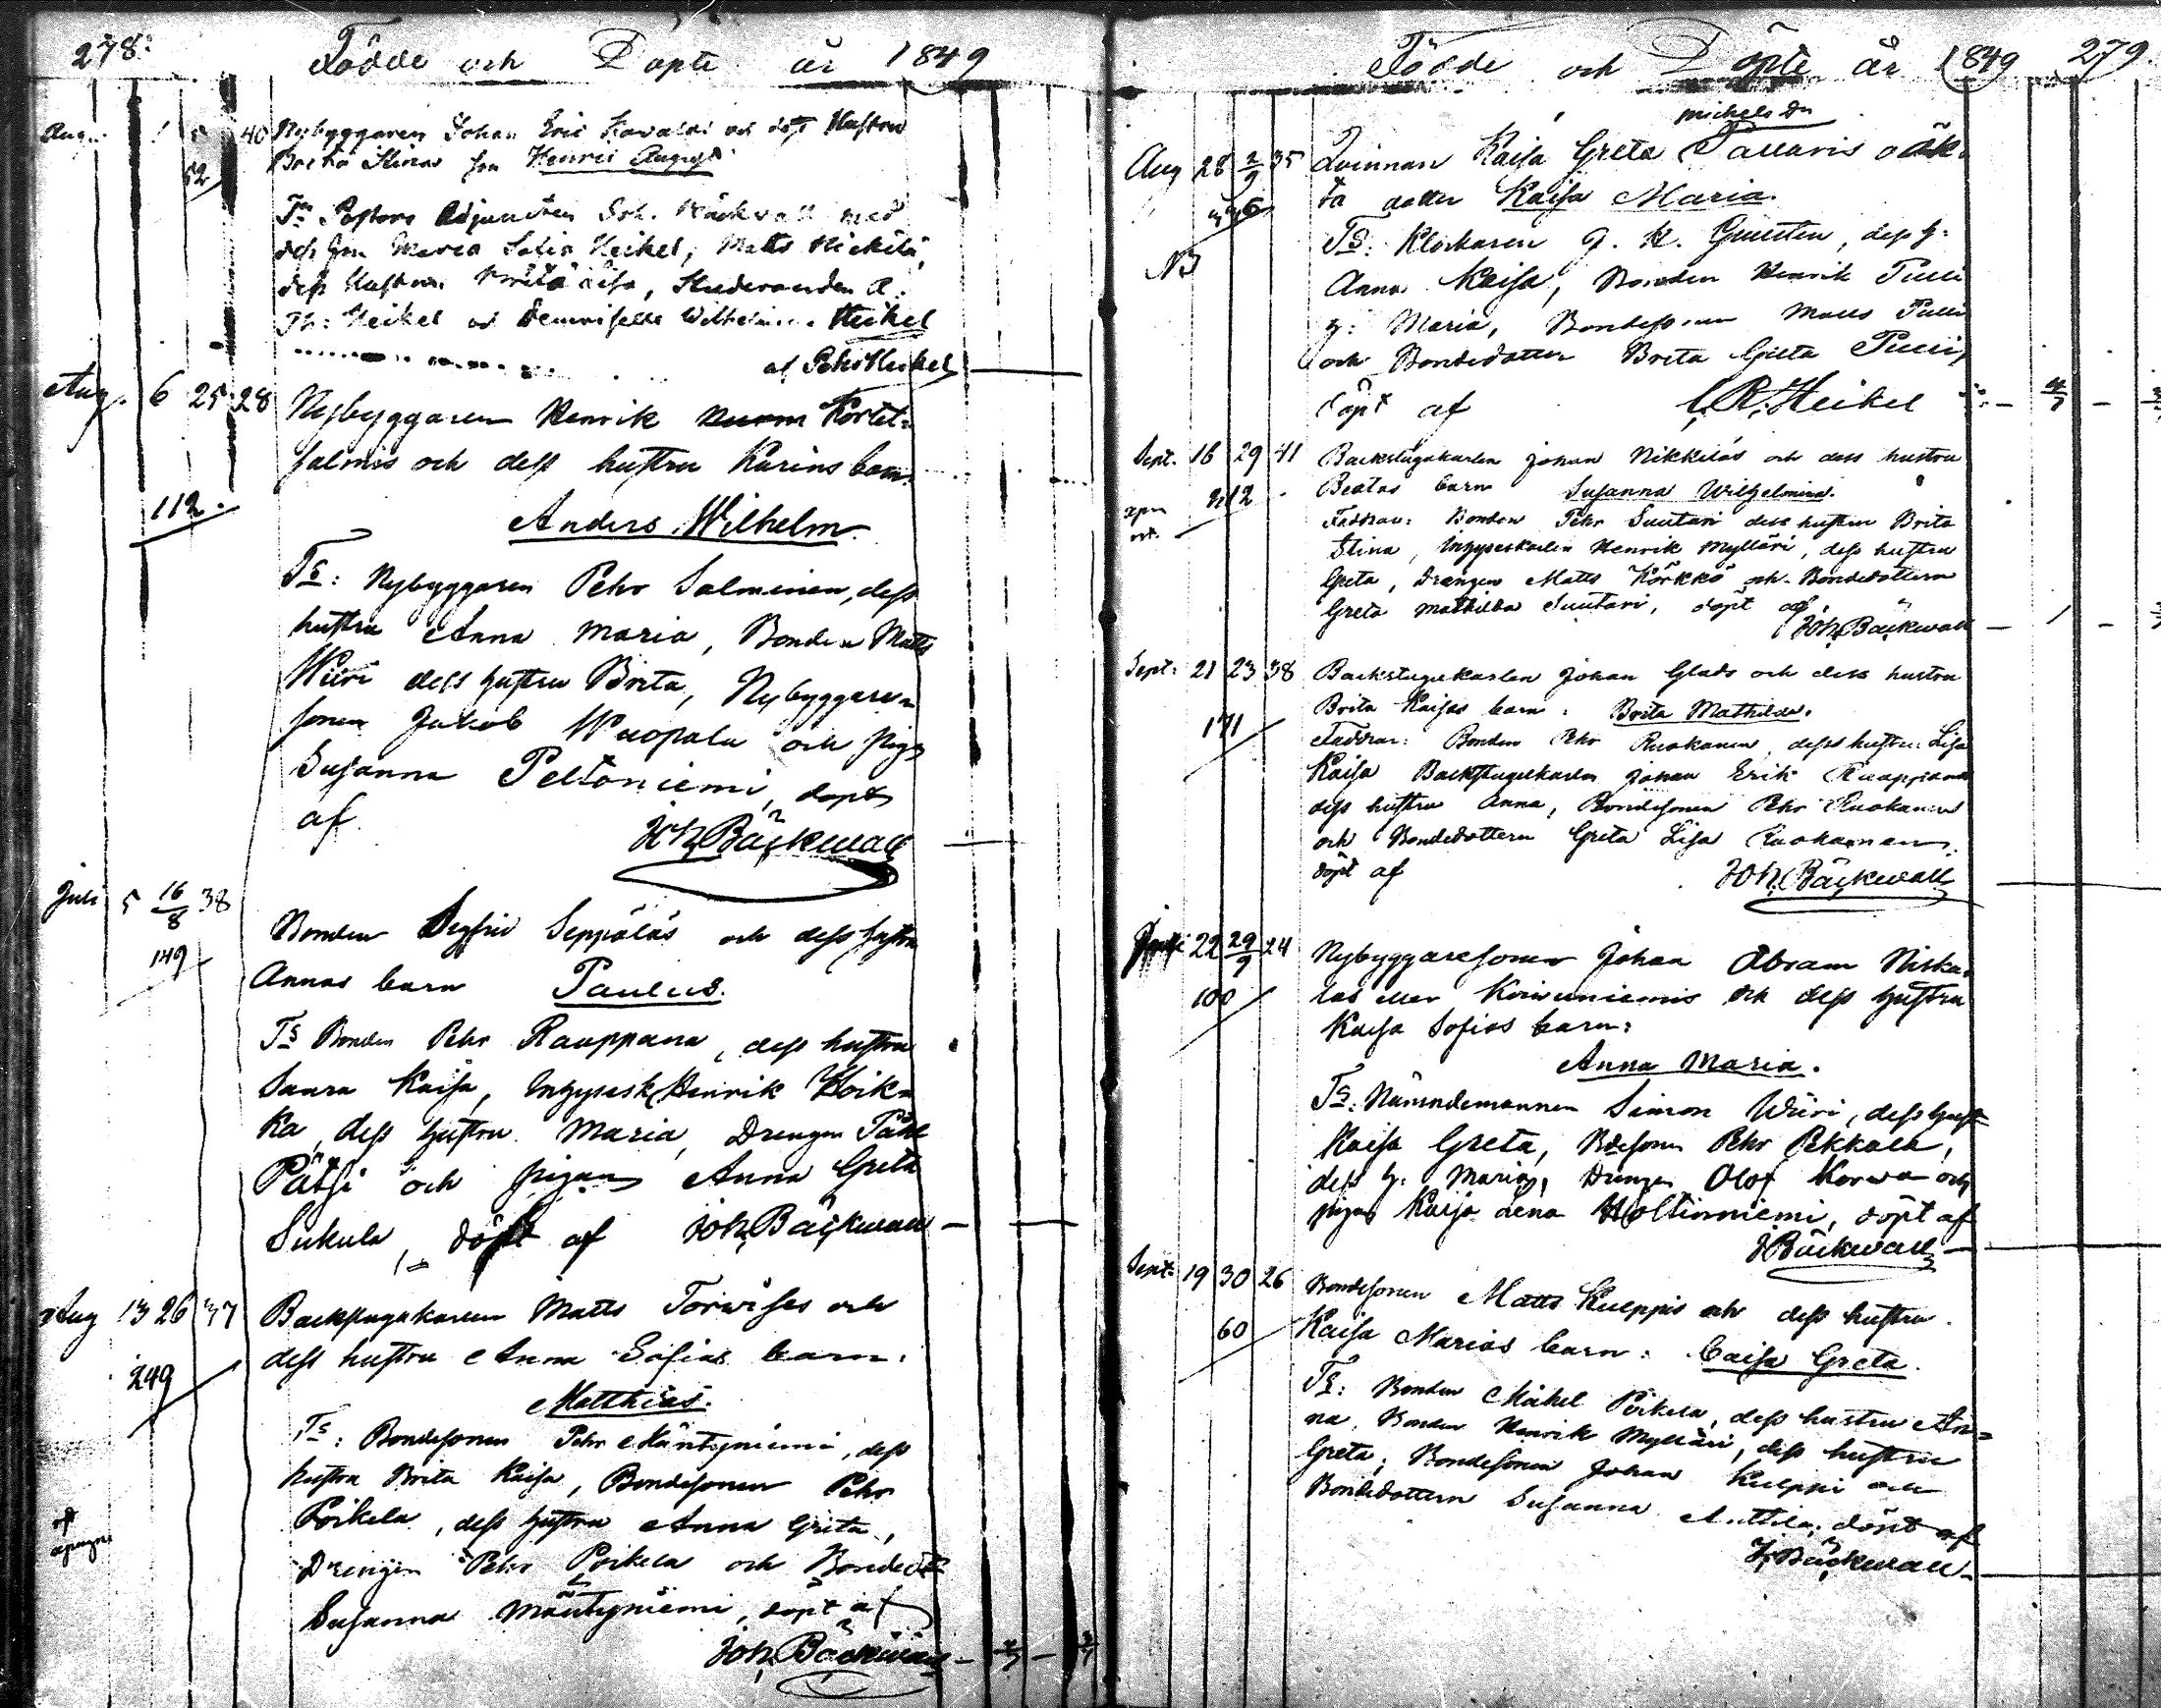 278.
Födde och Döpte år 1849
Aug. 1 5 40 Nybyggaren Johan Eric och dess Hustru
52 Brita Stinas son Henric August
Ts Pastors Adjuncten Joh. Bäckvall med
dess fru Maria Sofia Heikel, Matts Nickilä,
dess Hustru Brita Lisa, Studeranden A.
Th. Heikel och Demoiselle Wilhelmina Heikel
af Pehr Heikel
Aug. 6 25 28 Nybyggaren Henrik Kortet-
salmis och dess hustru Karins barn.
112.
Anders Wilhelm.
Ts: Nybyggaren Pehr Salminen, dess
hustru Anna Maria, Bonden Matts
Wiiri dess hustru Brita, Nybyggare-
sonen Jakob Wuopala och pigan
Susanna Peltoniemi, döpt
af
Joh. Bäckwall
Juli 5 16/8 38
Bonden Segfrid Seppäläs och dess hustru
149
Annas barn Paulus.
Ts Bonden Pehr Rauppana, dess hustru
Saara Kaisa, Inhysesk. Henrik Hoik-
ka, dess hustru Maria, Drengen Påhl
Pätsi och pigan Anna Greta
Sukula, döpt af Joh. Bäckwall
Aug 13 26 37 Backstugukarlen Matts Torwises och
dess hustru Anna Sofias barn.
249
Matthias.
Ts: Bondesonen Pehr Mäntyniemi, dess
hustru Brita Kaisa, Bondesonen Pehr
Poikela, dess hustru Anna Greta,
Drengen Pehr Poikela och Bondedr
Susanna Mäntyniemi, döpt af
Joh. Bäckwall
Födde och Döpte år 1849 279.
Michels dr
Aug 28 2/9 35 Qvinnan Kaisa Greta Pallaris oäk-
ta dotter Kaisa Maria.
NB
Ts: Klockaren J. H. Grunsten, dess h.
Anna Kaisa, Bonden Henrik Pulli
h: Maria, Bondesonen Matts Pulli
och Bondedotter Brita Greta Pulli,
döpt af C. R. Heikel
Sept. 16 29 41 Backstugukarlen Johan Nikkiläs och dess hustru
212 Beatas barn Susanna Wilhelmina.
Faddrar: Bonden Pehr Suutari dess hustru Brita
Stina, Inhyseskarlen Henrik Mylläri, dess hustru
Greta, Drengen Matts Körkkö och Bondedottern
Greta Mathilda Suutari, döpt af,
Joh. Bäckwall
Sept: 21 23 38 Backstugukarlen Johan Glads och dess hustru
171 Brita Kaisas barn: Brita Mathilda.
Faddrar: Bonden Pehr Ruokanen, dess hustru Lisa
Kaisa Backstugukarlen Johan Erik Rauppana
dess hustru Anna, Bondesonen Pehr Ruokanen
och Bondedottern Greta Lisa Ruokanen,
döpt af
Joh. Bäckwall
22 29/9 24 Nybyggaresonen Johan Abram Niska-
100 las eller Koivuniemis och dess hustru
Kaisa Sofias barn:
Anna Maria.
Ts: Nämndemannen Simon Wiiri, dess hustr
Kaisa Greta, Bdesonen Pehr Pekkala,
dess h: Maria, Drengen Olof Korwa och
pigan Kaisa Lena Holtinniemi, döpt af
J. Bäckwall
Sept: 19 30 26 Bondesonen Matts Kulppis och dess hustru
60 Kaisa Marias barn: Caisa Greta.
Ts: Bonden Mikel Poikela, dess hustru An-
na, Bonden Henrik Mylläri, dess hustru
Greta, Bondesonen Johan Kulppi och
Bondedottern Susanna Anttila, döpt af
J. Bäckwall